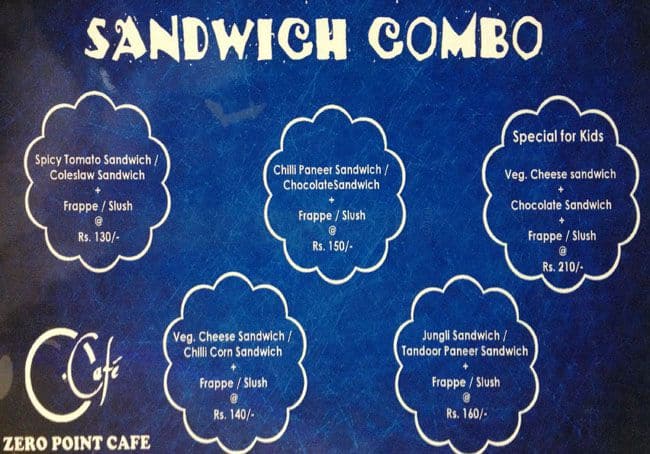 SANDWICH COMBO
Spicy Tomato Sandwich /
Coleslaw Sandwich
+
Frappe / Slush
@
Rs. 130/-
Chilli Paneer Sandwich /
ChocolateSandwich
+
Frappe / Slush
@
Rs. 150/-
Special for Kids
Veg. Cheese sandwich
+
Chocolate Sandwich
+
Frappe / Slush
@
Rs. 210/-
Veg. Cheese Sandwich /
Chilli Corn Sandwich
+
Frappe / Slush
@
Rs. 140/-
Jungli Sandwich /
Tandoor Paneer Sandwich
+
Frappe / Slush
@
Rs. 160/-
C.Café
ZERO POINT CAFE